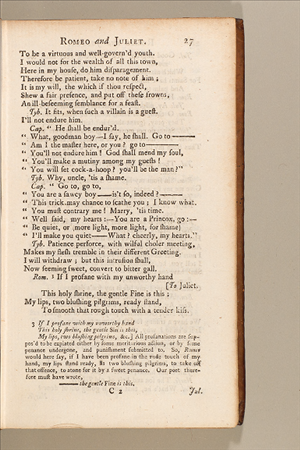 ROMEO and JULIET. 27
To be a virtuous and well-govern'd youth.
I would not for the wealth of all this town,
Here in my house, do him disparagement.
Therefore be patient, take no note of him;
It is my will, the which if thou respect,
Shew a fair presence, and put off these frowns,
An ill-beseeming semblance for a feast.
Tyb. It fits, when such a villain is a guest.
I'll not endure him.
Cap. " He shall be endur'd.
" What, goodman boy—I say, he shall. Go to——
" Am I the master here, or you? go to———
" You'll not endure him! God shall mend my soul,
" You'll make a mutiny among my guests!
" You will set cock-a-hoop? you'll be the man?"
Tyb. Why, uncle, 'tis a shame.
Cap. " Go to, go to,
" You are a saucy boy——is't so, indeed?———
" This trick may chance to scathe you; I know what.
" You must contrary me! Marry, 'tis time.
" Well said, my hearts:—You are a Princox, go:—
" Be quiet, or more light, more light, for shame!
" I'll make you quiet——What? cheerly, my hearts."
Tyb. Patience perforce, with wilful choler meeting,
Makes my flesh tremble in their different Greeting.
I will withdraw; but this intrusion shall,
Now seeming sweet, convert to bitter gall.
Rom. 3 If I profane with my unworthy hand
[To Juliet.
This holy shrine, the gentle Fine is this;
My lips, two blushing pilgrims, ready stand,
To smooth that rough touch with a tender kiss.
3 If I profane with my unworthy hand
This holy shrine, the gentle Sin is this,
My lips, two blushing pilgrims, &c.] All profanations are sup-
pos'd to be expiated either by some meritorious action, or by some
penance undergone, and punishment submitted to. So, Romeo
would here say, if I have been profane in the rude touch of my
hand, my lips stand ready, as two blushing pilgrims, to take off
that offence, to atone for it by a sweet penance. Our poet there-
fore must have wrote,
——the gentle Fine is this.
C 2 Jul.